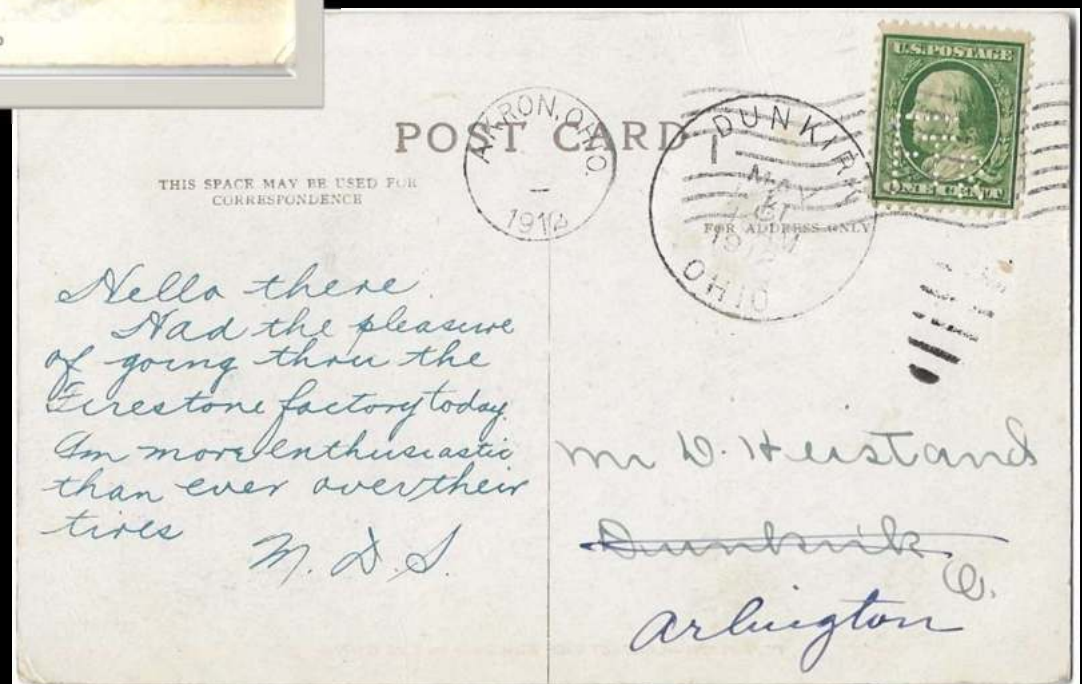 POST CARD
THIS SPACE MAY BE USED FOR
CORRESPONDENCE
FOR ADDRESS ONLY
AKRON, OHIO.
DUNKIRK
MAY
OHIO
U.S. POSTAGE
ONE CENT
Hello there.
Had the pleasure
of going thru the
Firestone factory today.
Am more enthusiastic
than ever over their
tires
M. D. S.
Mr D. Heistand
Dunkirk
O.
Arlington